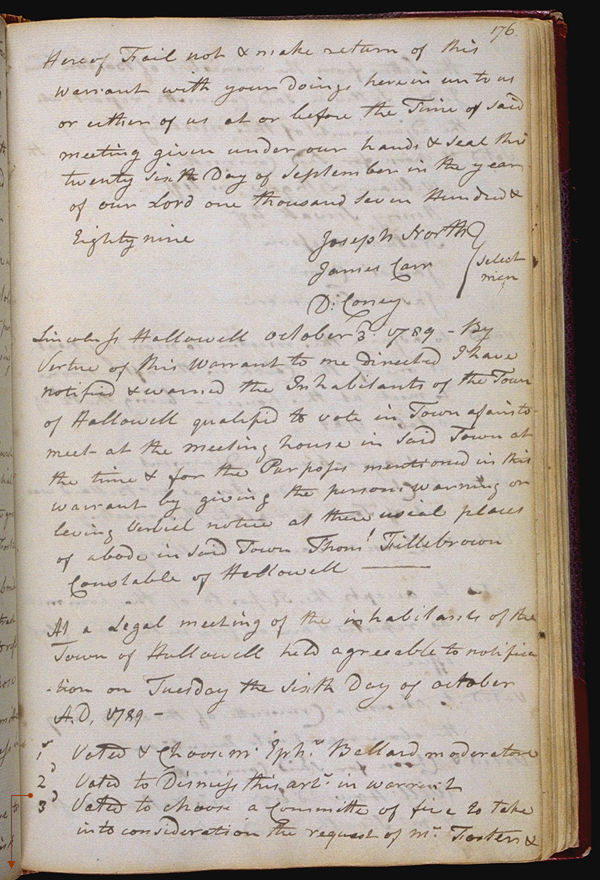 176
Hereof Fail not & make return of this
warrant with your doings herein unto us
or either of us at or before the Time of said
meeting given under our hands & seal this
twenty sixth Day of September in the year
of our Lord one thousand Seven Hundred &
Eighty nine
Joseph North
James Carr
Select
men
D: Coney
Lincoln Ss Hallowell October 3d 1789 - By
Vertue of this Warrant to me Directed I have
notified & warned the Inhabitants of the Town
of Hallowell qualifed to vote in Town afairs to
meet at the meeting house in said Town at
the time & for the Purposes mentioned in this
warrant by giving the persons warning or
leving Verbiel notice at there usial places
of abode in said Town Thos Fillebrown
Constable of Hallowell
At a Legal meeting of the inhabitants of the
Town of Hallowell held agreeable to notifica
-tion on Tuesday the Sixth Day of october
A.D, 1789 -
1 Voted & Choose mr Ephm Ballard moderator
2 Voted to Dismiss this artl in warrent
3 Voted to choose a Committe of five to take
into consideration the request of mr Fosters &